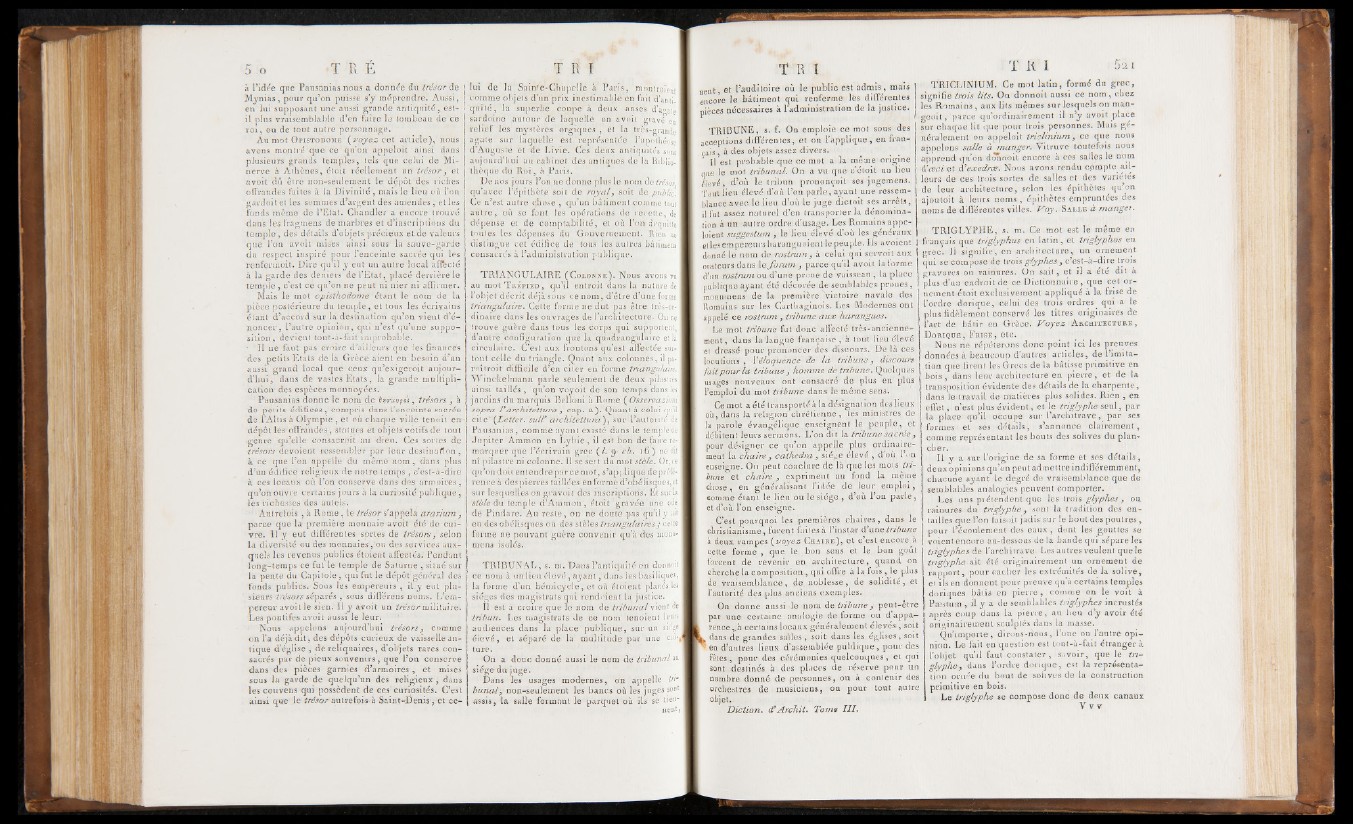 5 o TRÉ TRI
à l'idée que Pausanias nous a donnée du trésor de
Mynias, pour qu'on puisse s'y méprendre. Aussi,
en lui supposant une aussi grande antiquité, est-
il plus vraisemblable d'en faire le tombeau de ce
roi, ou de tout autre personnage.
Au mot OPISTHODOME (voyez cet article), nous
avons montré que ce qu'on appeloit ainsi dans
plusieurs grands temples, tels que celui de Mi-
nerve à Athènes, étoit réellement un trésor, et
avoit dû être non-seulement le dépôt des riches
offrandes faites à la Divinité, mais le lieu où l'on
gardoit et les sommes d'argent des amendes, et les
fonds même de l'Etat. Chandler a encore trouvé
dans les fragmens de marbres et d'inscriptions du
temple, des détails d'objets précieux et de valeurs
que l'on avoit mises ainsi sous la sauve-garde
du respect inspiré pour l'enceinte sacrée qui les
renfermoit. Dire qu'il y eut un autre local affecté
à la garde des deniers de l'Etat, placé derrière le
temple, c'est ce qu'on ne peut ni nier ni affirmer.
Mais le mot opisthodome étant le nom de la
pièce postérieure du temple, et tous les écrivains
étant d'accord sur la destination qu'on vient d'é-
noncer, l'autre opinion, qui n'est qu'une suppo-
sition, devient tout-à-fait improbable.
Il ne faut pas croire d'ailleurs que les finances
des petits Etats de la Grèce aient eu besoin d'un
aussi grand local que ceux qu'exigeroit aujour-
d'hui, dans de vastes Etats, la grande multipli-
cation des espèces monnoyées.
Pausanias donne le nom de trésors, à
de petits édifices, compris dans l'enceinte sacrée
de l'Altis à Olympie, et où chaque ville tenoit en
dépôt les offrandes, statues et objets votifs de tout
genre qu'elle consacroit au dieu. Ces sortes de
trésors devoient ressembler par leur destination,
à ce que l'on appelle du même nom, dans plus
d'un édifice religieux de notre temps, c'est-à-dire
à ces locaux où l'on conserve dans des armoires,
qu'on ouvre certains jours à la curiosité publique,
les richesses des autels.
Autrefois, à Rome, le trésor s'appela ærarium,
parce que la première monnaie avoit été de cui-
vre. Il y eut différentes sortes de trésors, selon
la diversité ou des monnaies, ou des services aux-
quels les revenus publics étoient affectés. Pendant
long-temps ce fut le temple de Saturne, situé sur
la pente du Capitole, qui fut le dépôt général des
fonds publics. Sous les empereurs, il y eut plu-
sieurs trésors séparés, sous différens noms. L'em-
pereur avoit le sien. Il y avoit un trésor militaire.
Les pontifes avoit aussi le leur.
Nous appelons aujourd'hui trésors, comme
on l'a déjà dit, des dépôts curieux de vaisselle an-
tique d'église, de reliquaires, d'objets rares con-
sacrés par de pieux souvenirs, que l'on conserve
dans des pièces garnies d'armoires, et mises
sous la garde de quelqu'un des religieux, dans
les couvens qui possèdent de ces curiosités. C'est
ainsi que le trésor autrefois à Saint-Denis, et ce-
lui de la Sainte-Chapelle à Paris, montroient
comme objets d'un prix inestimable en fait d'anti-
quité, la superbe coupe à deux anses d'agate
sardoine autour de laquelle on avoit gravé en
relief les mystères orgiques, et la très-grande
agate sur laquelle est représentée l'apothéose
d'Auguste et de Livie. Ces deux antiquités sont
aujourd'hui au cabinet des antiques de la Biblio-
thèque du Roi, à Paris.
De nos jours l'on ne donne plus le nom de trésor
qu'avec l'épithète soit de royal, soit de public.
Ce n'est autre chose, qu'un bâtiment comme tout
autre, où se font les opérations de recette, de
dépense et de comptabilité, et où l'on acquitte
toutes les dépenses du Gouvernement. Rien ne
distingue cet édifice de tous les autres bâtimens
consacrés à l'administration publique.
TRIANGULAIRE (COLONNE). Nous avons vu
au mot TRÉPIED, qu'il entroit dans la nature de
l'objet décrit déjà sous ce nom, d'être d'une forme
triangulaire. Cette forme ne dut pas être très-or-
dinaire dans les ouvrages de l'architecture. On ne
trouve guère dans tous les corps qui supportent,
d'autre configuration que la quadrangulaire et la
circulaire. C'est aux frontons qu'est affectée sur-
tout celle du triangle. Quant aux colonnes, il pa-
roîtroit difficile d'en citer en forme triangulaire.
Winckelmann parle seulement de deux pilastres
ainsi taillés, qu'on voyoit de son temps dans les
jardins du marquis Belloni à Rome (Osservazioni
sopra l'architettura, cap. 2). Quant à celui qu'il
cite (Letter. sull' architettura), sur l'autorité de
Pausanias, comme ayant existé dans le temple de
Jupiter Ammon en Lybie, il est bon de faire re-
marquer que l'écrivain grec (l. 9. ch. 16) ne dit
ni pilastre ni colonne. Il se sert du mot stèle. Or ce
qu'on doit entendre par ce mot, s'applique de préfé-
rence à des pierres taillées en forme d'obélisques, et
sur lesquelles on gravoit des inscriptions. Et sur la
stèle du temple d'Ammon, étoit gravée une ode
de Pindare. Au reste, on ne doute pas qu'il y ait
eu des obélisques ou des stèles triangulaires; cette
forme ne pouvant guère convenir qu'à des monu-
mens isolés.
TRIBUNAL, s. m. Dans l'antiquité on donnoit
ce nom à un lieu élevé, ayant, dans les basiliques,
la forme d'un hémicycle, et où étoient placés les
siéges des magistrats qui rendoient la justice.
Il est à croire que le nom de tribunal vient de
tribun. Les magistrats de ce nom tenoient leurs
audiences dans la place publique, sur un siége
élevé, et séparé de la multitude par une clo-
ture.
On a donc donné aussi le nom de tribunal au
siége du juge.
Dans les usages modernes, on appelle tri-
bunal, non-seulement les bancs où les juges sont
assis, la salle formant le parquet où ils se tien-
nent,
TRI TRI 521
nent, et l'auditoire où le public est admis, mais
encore le bâtiment qui renferme les différentes
pièces nécessaires à l'administration de la justice.
TRIBUNE, s. f. On emploie ce mot sous des
acceptions différentes, et on l'applique, en fran-
çais, à des objets assez divers.
Il est probable que ce mot a la même origine
que le mot tribunal. On a vu que c'étoit au lieu
élevé, d'où le tribun prononçoit ses jugemens.
Tout lieu élevé d'où l'on parle, ayant une ressem-
blance avec le lieu d'où le juge dictoit ses arrêts,
il fut assez naturel d'en transporter la dénomina-
tion à un autre ordre d'usage. Les Romains appe-
loient suggestum, le lieu élevé d'où les généraux
et les empereurs haranguoient le peuple. Ils avoient
donné le nom de rostrum, à celui qui servoit aux
orateurs dans le forum, parce qu'il avoit la forme
d'un rostrum ou d'une proue de vaisseau, la place
publique ayant été décorée de semblables proues,
monumens de la première victoire navale des
Romains sur les Carthaginois. Les Modernes ont
appelé ce rostrum, tribune aux harangues.
Le mot tribune fut donc affecté très-ancienne-
ment, dans la langue française, à tout lieu élevé
et dressé pour prononcer des discours. De là ces
locutions, l'éloquence de la tribune, discours
fait pour la tribune, homme de tribune. Quelques
usages nouveaux ont consacré de plus en plus
l'emploi du mot tribune dans le même sens.
Ce mot a été transporté à la désignation des lieux
où, dans la religion chrétienne, les ministres de
la parole évangélique enseignent le peuple, et
débitent leurs sermons. L'on dit la tribune sacrée,
pour désigner ce qu'on appelle plus ordinaire-
ment la chaire, cathedra, siége élevé, d'où l'on
enseigne. On peut conclure de là que les mots tri-
bune et chaire, expriment au fond la même
chose, en généralisant l'idée de leur emploi,
comme étant le lieu ou le siége, d'où l'on parle,
et d'où l'on enseigne.
C'est pourquoi les premières chaires, dans le
christianisme, furent faites à l'instar d'une tribune
à deux rampes (voyez CHAIRE), et c'est encore à
cette forme, que le bon sens et le bon goût
forcent de revenir en architecture, quand on
cherche la composition, qui offre à la fois, le plus
de vraisemblance, de noblesse, de solidité, et
l'autorité des plus anciens exemples.
On donne aussi le nom de tribune, peut-être
par une certaine analogie de forme ou d'appa-
rence, à certains locaux généralement élevés, soit
dans de grandes salles, soit dans les églises, soit
en d'autres lieux d'assemblée publique, pour des
fêtes, pour des cérémonies quelconques, et qui
sont destinés à des places de réserve pour un
nombre donné de personnes, ou à contenir des
orchestres de musiciens, ou pour tout autre
objet.
Diction. d'Archit. Tome III.
TRICLINIUM. Ce mot latin, formé du grec,
signifie trois lits. On donnoit aussi ce nom, chez
les Romains, aux lits mêmes sur lesquels on man-
geoit, parce qu'ordinairement il n'y avoit place
sur chaque lit que pour trois personnes. Mais gé-
néralement on appeloit triclinium, ce que nous
appelons salle à manger. Vitruve toutefois nous
apprend qu'on donnoit encore à ces salles le nom
d'œci et d'exedræ. Nous avons rendu compte ail-
leurs de ces trois sortes de salles et des variétés
de leur architecture, selon les épithètes qu'on
ajoutoit à leurs noms, épithètes empruntées des
noms de différentes villes. Voy. SALLE à manger.
TRIGLYPHE, s. m. Ce mot est le même en
français que triglyphus en latin, et triglyphos en
grec. Il signifie, en architecture, un ornement
qui se compose de trois glyphes, c'est-à-dire trois
gravures ou rainures. On sait, et il a été dit à
plus d'un endroit de ce Dictionnaire, que cet or-
nement étoit exclusivement appliqué à la frise de
l'ordre dorique, celui des trois ordres qui a le
plus fidèlement conservé les titres originaires de
l'art de bâtir en Grèce. Voyez ARCHITECTURE,
DORIQUE, FRISE, etc.
Nous ne répéterons donc point ici les preuves
données à beaucoup d'autres articles, de l'imita-
tion que firent les Grecs de la bâtisse primitive en
bois, dans leur architecture en pierre, et de la
transposition évidente des détails de la charpente,
dans le travail de matières plus solides. Rien, en
effet, n'est plus évident, et le triglyphe seul, par
la place qu'il occupe sur l'architrave, par ses
formes et ses détails, s'annonce clairement,
comme représentant les bouts des solives du plan-
cher.
Il y a sur l'origine de sa forme et ses détails,
deux opinions qu'on peut admettre indifféremment,
chacune ayant le degré de vraisemblance que de
semblables analogies peuvent comporter.
Les uns prétendent que les trois glyphes, ou
rainures du triglyphe, sont la tradition des en-
tailles que l'on faisoit jadis sur le bout des poutres,
pour l'écoulement des eaux, dont les gouttes se
voient encore au-dessous de la bande qui sépare les
triglyphes de l'architrave. Les autres veulent que le
triglyphe ait été originairement un ornement de
rapport, pour cacher les extrémités de la solive,
et ils en donnent pour preuve qu'à certains temples
doriques bâtis en pierre, comme on le voit à
Pœstum, il y a de semblables triglyphes incrustés
après coup dans la pierre, au lieu d'y avoir été
originairement sculptés dans la masse.
Qu'importe, dirons-nous, l'une ou l'autre opi-
nion. Le fait en question est tout-à-fait étranger à
l'objet qu'il faut constater, savoir, que le tri-
glyphe, dans l'ordre dorique, est la représenta-
tion ornée du bout de solives de la construction
primitive en bois.
Le triglyphe se compose donc de deux canaux
V v v